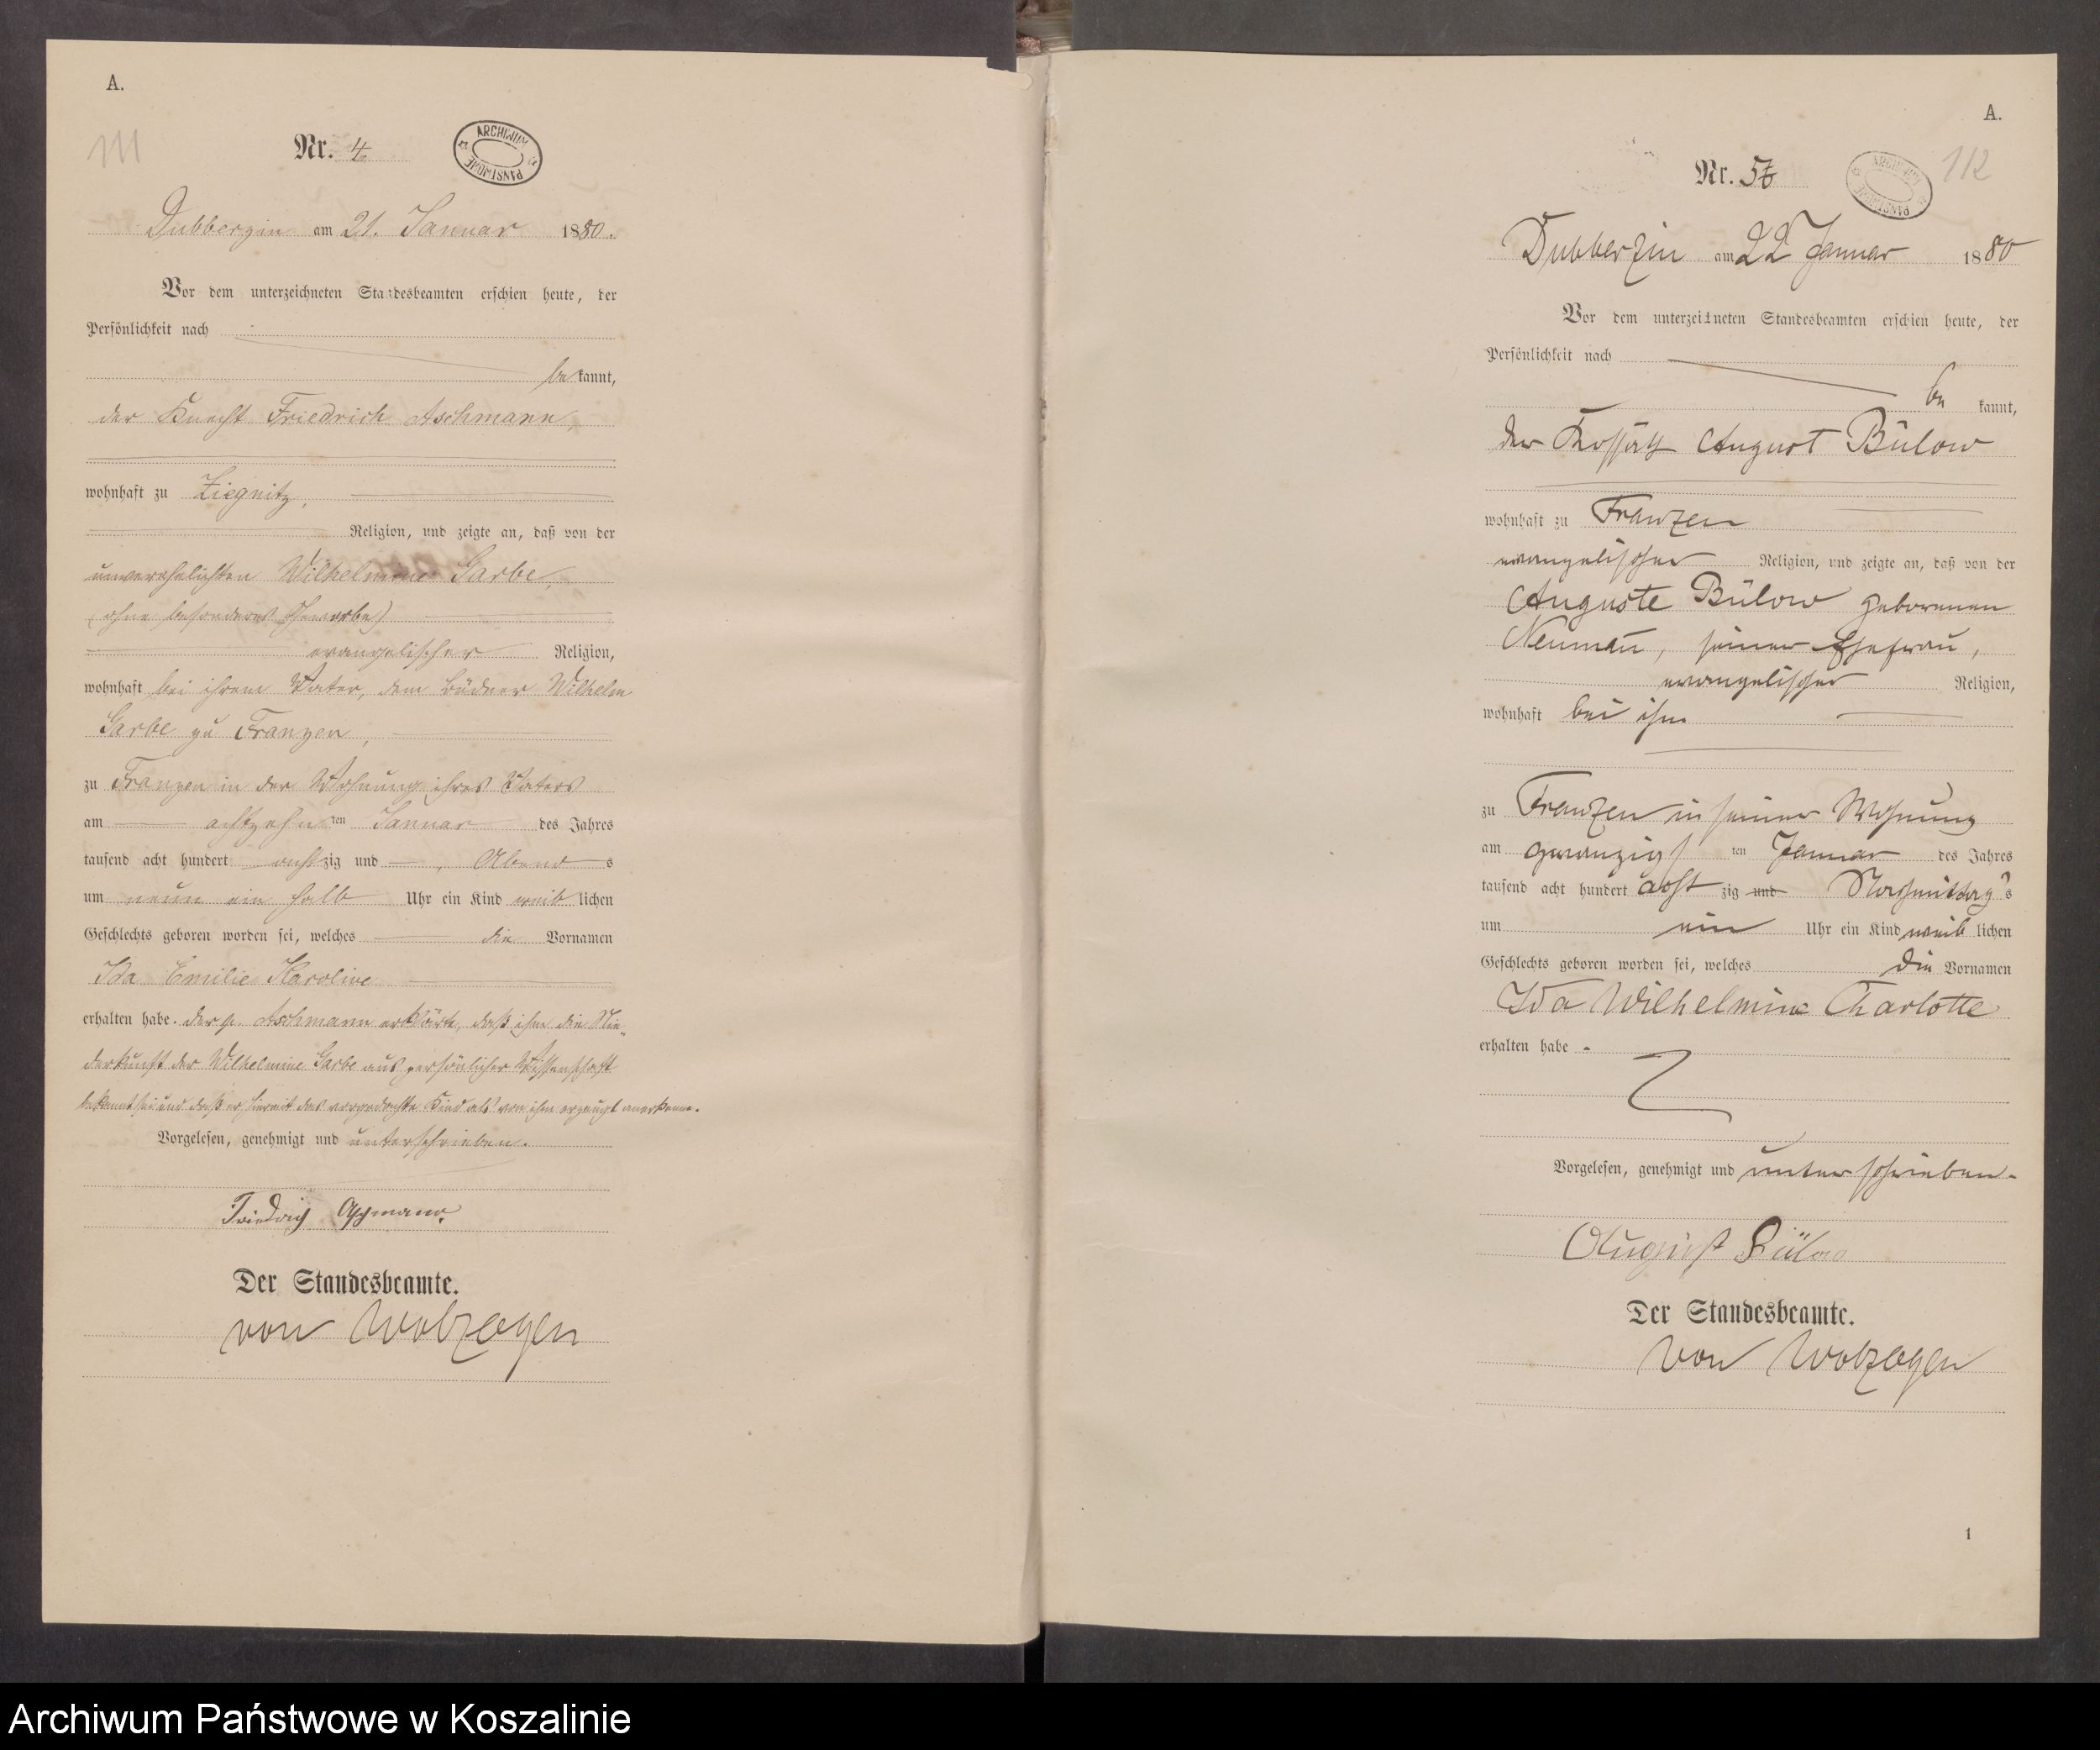 A.
111
Nr. 4
ARCHIWUM PAŃSTWOWE
Dubberzin am 21. Januar 1880.
Vor dem unterzeichneten Standesbeamten erschien heute, der
Persönlichkeit nach
be kannt,
der Knecht Friedrich Aschmann,
wohnhaft zu Ziegnitz,
Religion, und zeigte an, daß von der
unverehelichten Wilhelmine Garbe,
(ohne besonderes Gewerbe)
evangelischer Religion,
wohnhaft bei ihrem Vater, dem Büdner Wilhelm
Garbe zu Franzen,
zu Franzen in der Wohnung ihres Vaters
am achtzehn ten Januar des Jahres
tausend acht hundert acht zig und , Abend s
um neun ein halb Uhr ein Kind weib lichen
Geschlechts geboren worden sei, welches die Vornamen
Ida Emilie Karoline
erhalten habe. Der p. Aschmann erklärte, daß ihm die Nie-
derkunft der Wilhelmine Garbe aus persönlicher Wissenschaft
bekannt sei und daß er hiermit das vorgedachte Kind als von ihm erzeugt anerkenne.
Vorgelesen, genehmigt und unterschrieben.
Friedrich Aschmann.
Der Standesbeamte.
von Wolzogen
A.
112
Nr. 5
ARCHIWUM PAŃSTWOWE
Dubberzin am 22 Januar 1880
Vor dem unterzeichneten Standesbeamten erschien heute, der
Persönlichkeit nach
be kannt,
der Kossäth August Bülow
wohnhaft zu Franzen
evangelischer Religion, und zeigte an, daß von der
Auguste Bülow geborenen
Neumañ, seiner Ehefrau,
evangelischer Religion,
wohnhaft bei ihm
zu Franzen in seiner Wohnung
am zwanzigs ten Januar des Jahres
tausend acht hundert acht zig und Nachmittag s
um ein Uhr ein Kind weib lichen
Geschlechts geboren worden sei, welches die Vornamen
Ida Wilhelmine Charlotte
erhalten habe.
Vorgelesen, genehmigt und unterschrieben.
August Bülow
Der Standesbeamte.
von Wolzogen
1
Archiwum Państwowe w Koszalinie